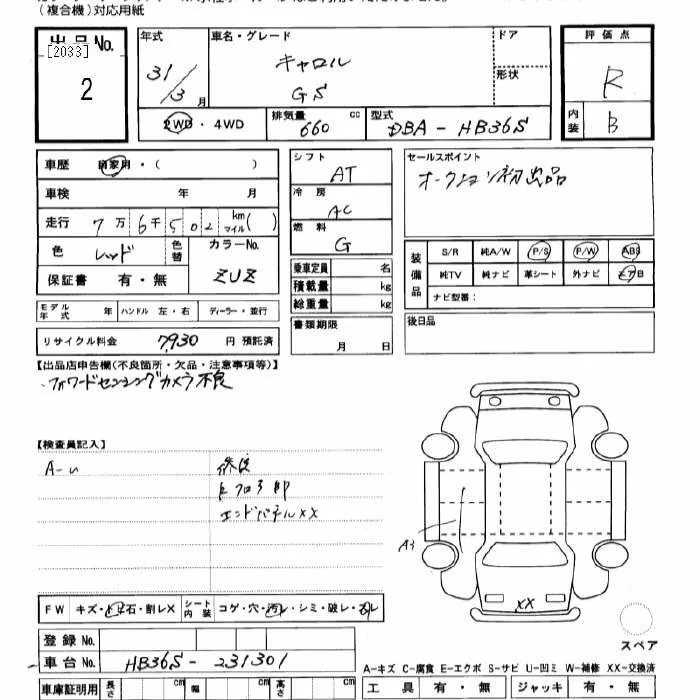 (複合機)対応用紙
出品No.
[2033]
2
年式
31/3月
車名・グレード
キャロル
GS
ドア
形状
評価点
R
内装
B
2WD・4WD
排気量
660 cc
型式
DBA - HB36S
車歴
自家用・( )
車検 年 月
走行 7万6千502 km マイル( )
色 レッド
色替
カラーNo.
ZUZ
保証書 有・無
シフト
AT
冷房
AC
燃料
G
セールスポイント
オークション初出品
乗車定員 名
積載量 kg
総重量 kg
装備品
S/R 純A/W P/S P/W ABS
純TV 純ナビ 革シート 外ナビ エアB
ナビ型番:
モデル年式 年 ハンドル 左・右 ディーラー・並行
リサイクル料金 7,930 円 預託済
書類期限
月 日
後日品
【出品店申告欄(不良箇所・欠品・注意事項等)】
・フォワードセンシングカメラ不良
【検査員記入】
エンドパネルXX
A3
XX
FW キズ・飛石・割レX シート内装 コゲ・穴・汚レ・シミ・破レ・切レ
登録No.
車台No. HB36S - 231301
スペア
A-キズ C-腐食 E-エクボ S-サビ U-凹ミ W-補修 XX-交換済
車庫証明用 長さ cm 幅 cm 高さ cm
工具 有・無 ジャッキ 有・無